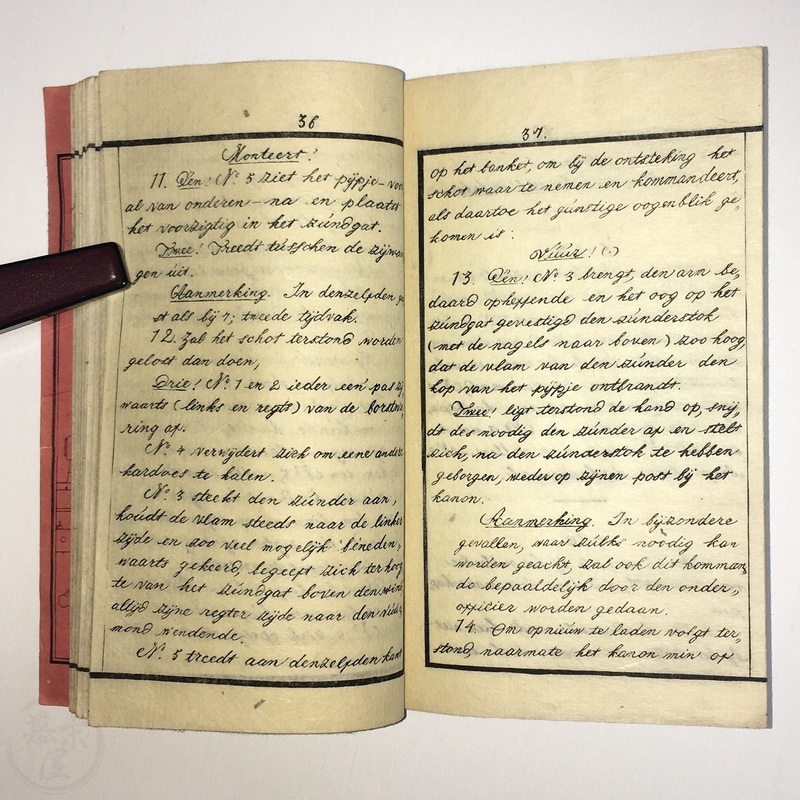 36
Monteert!
11. Één! No. 5 ziet het pijpje – voor
al van onderen – na en plaatst
het voorzigtig in het zúndgat.
Twee! Treedt tússchen de zijwan
gen úit.
Aanmerking. In denzelfden
st als bij 7; tweede tijdvak.
12. Zal het schot terstond worden
gelost dan doen,
Drie! No. 1 en 2 ieder een pas zij
waarts (links en regts) van de borstwe
ring af.
No. 4 verwijdert zich om eene andere
kardoes te halen.
No. 3 steekt den zúnder aan,
houdt de vlam steeds naar de linker
zijde en zoo veel mogelijk beneden,
waarts gekeerd begeeft zich ter hoog
te van het zúndgat boven den wind
altijd zijne regter zijde naar den vúúr,
mond wendende.
No. 5 treedt aan denzelfden kant
37.
op het banket, om bij de ontsteking het
schot waar te nemen en kommandeert,
als daartoe het gúnstige oogenblik ge,
komen is:
Vúúr! (.)
13. Één! No. 3 brengt, den arm be,
daard opheffende en het oog op het
zúndgat gevestigd den zúnderstok
(met de nagels naar boven) zoo hoog,
dat de vlam van den zúnder den
kop van het pijpje ontbrandt.
Twee! ligt terstond de hand op, snij,
dt des noodig den zúnder af en stelt
zich, na den zúnderstok te hebben
geborgen, weder op zijnen post bij het
kanon.
Aanmerking. In bijzondere
gevallen, waar zúlks noodig kan
worden geacht, zal ook dit komman,
do bepaaldelijk door den onder,
officier worden gedaan.
14. Om opnieúw te laden volgt ter,
stond, naarmate het kanon min of